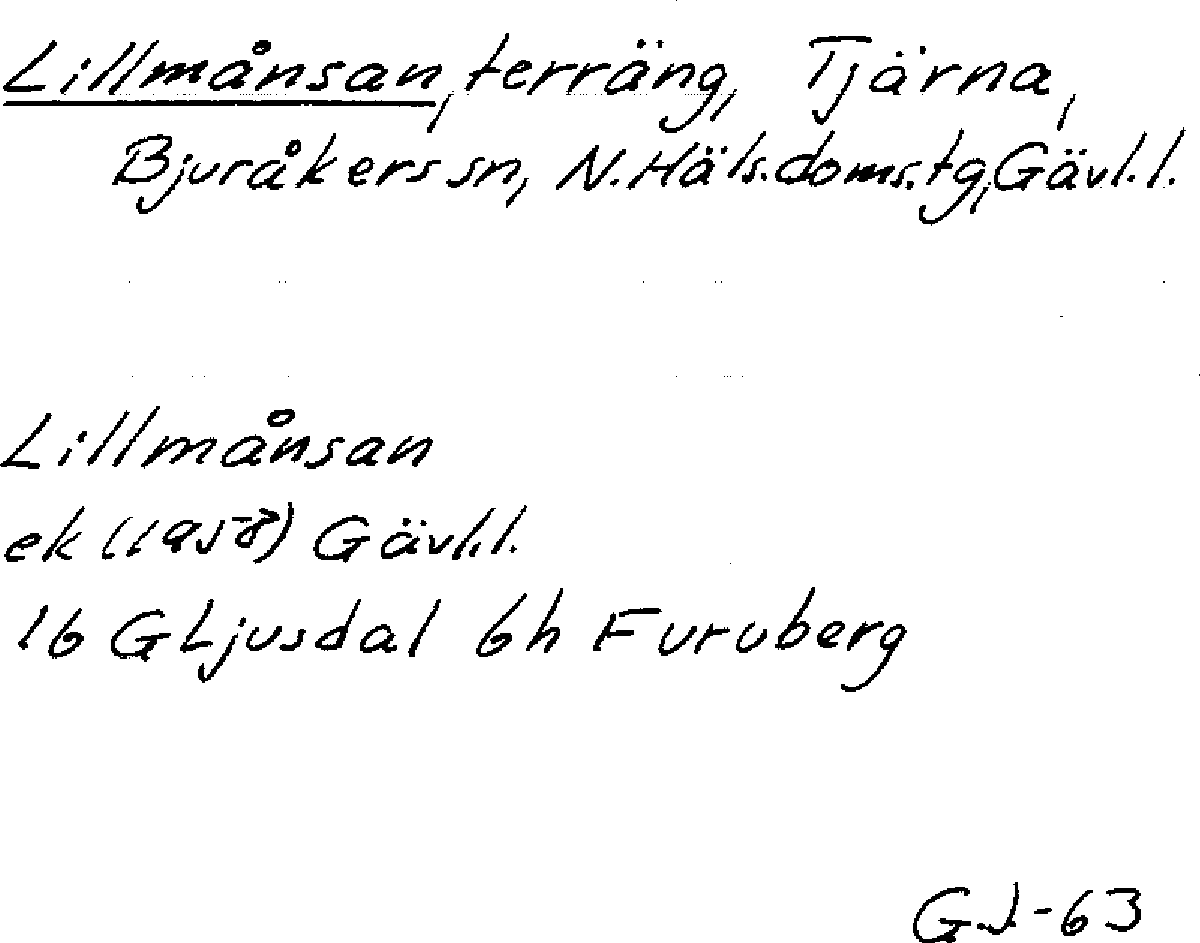 Lillmånsan, terräng, Tjärna,
Bjuråkers sn, N. Häls. doms. tg, Gävl. l.
Lillmånsan
ek (1958) Gävl. l.
16 G Ljusdal 6h Furuberg
G.J.-63